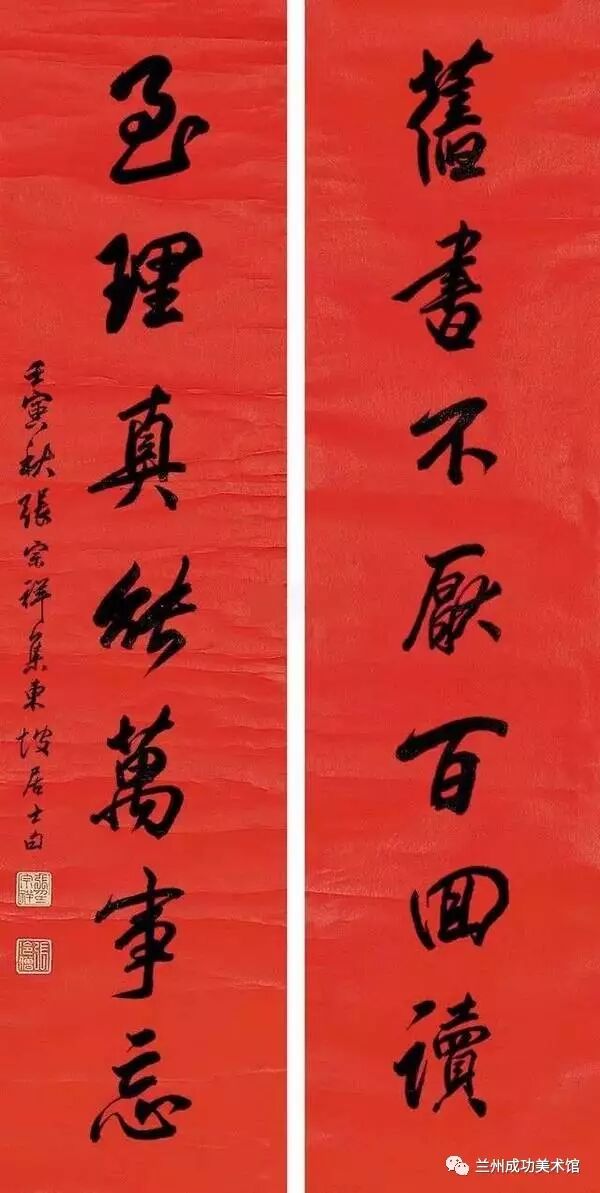 舊書不厭百回讀
至理真能萬事忘
壬寅秋張宗祥集東坡居士句
兰州成功美术馆